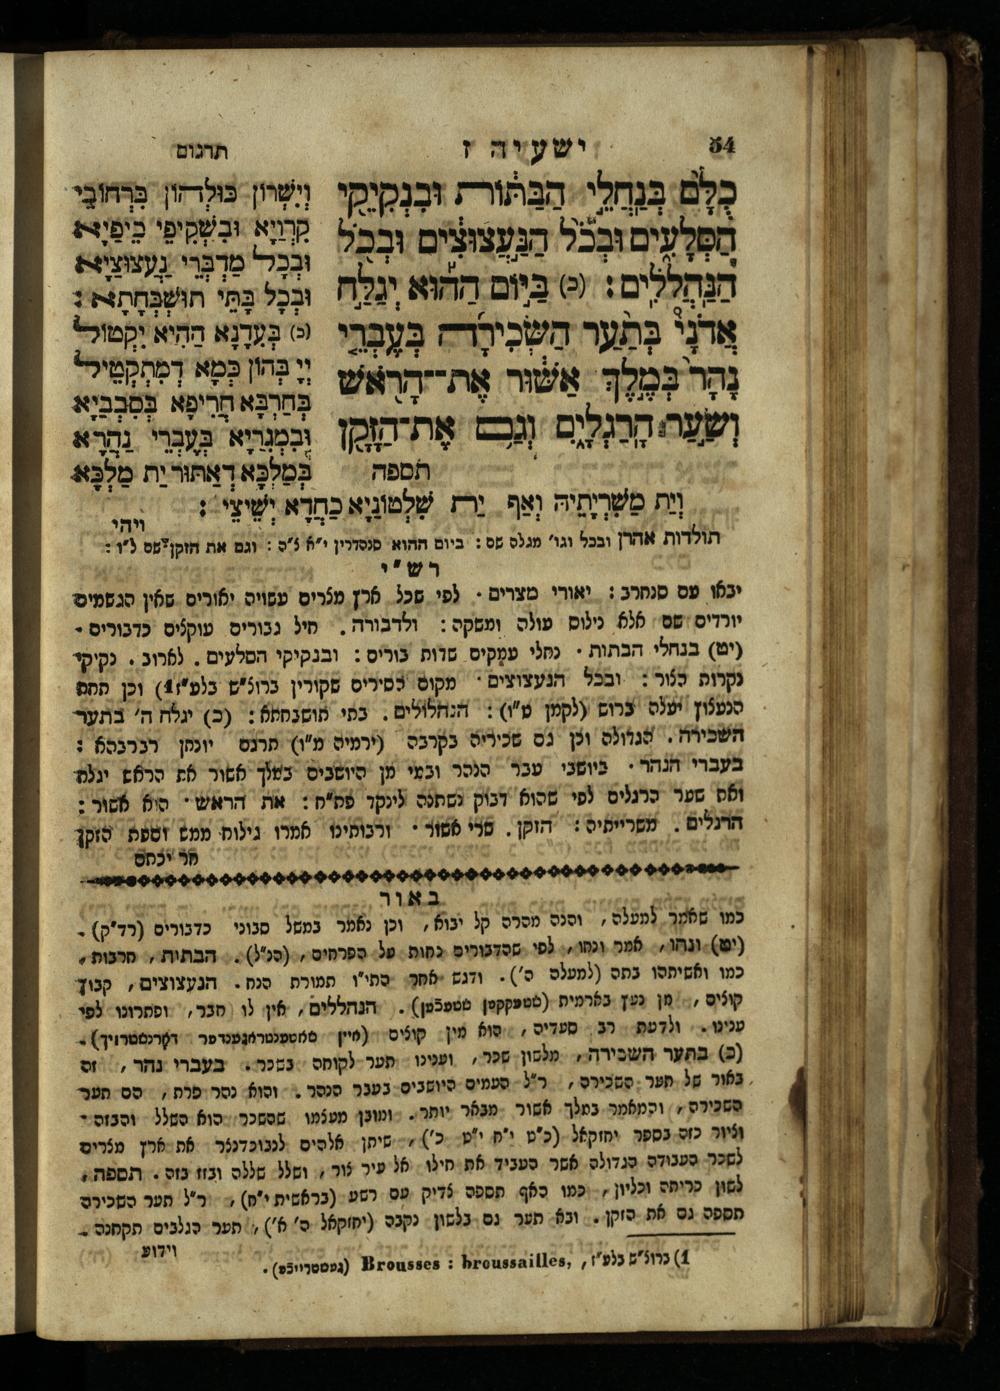 54
ישעיה ז
תרגום
כֻלָּם בְּנַחֲלֵי הַבַּתּוֹת וּבִנְקִיקֵי
הַסְּלָעִים וּבְכֹל הַנַּעֲצוּצִים וּבְכֹל
הַנַּהֲלֹלִים׃ (כ) בַּיּוֹם הַהוּא יְגַלַּח
אֲדֹנָי בְּתַעַר הַשְּׂכִירָה בְּעֶבְרֵי
נָהָר בְּמֶלֶךְ אַשּׁוּר אֶת־הָרֹאשׁ
וְשַׂעַר הָרַגְלָיִם וְגַם אֶת־הַזָּקָן
תספה
וְיִשְׁרוֹן כּוּלְּהוֹן בִּרְחוֹבֵי
קִרְוַיָּא וּבִשְׁקִיפֵי כֵיפַיָּא
וּבְכָל מַדְבְּרֵי נַעֲצוּצַיָּא
וּבְכָל בָּתֵּי תוּשְׁבְּחָתָא׃
(כ) בְּעִדָנָא הַהִיא יִקְטוֹל
יְיָ בְּהוֹן כְּמָא דְמִתְקְטֵיל
בְּחַרְבָּא חֲרִיפָא בְּסִבְבַיָּא
וּבְמַגְרַיָּא בְּעִבְרֵי נַהֲרָא
בְּמַלְכָּא דְאַתּוּר יַת מַלְכָּא
וְיַת מַשִּׁרְיָתֵיהּ וְאַף יַת שִׁלְטוֹנַיָא כַחֲדָא יְשֵׁיצֵי׃
ויהי
תולדות אהרן ובכל וגו' מגלה שם׃ ביום ההוא סנהדרין י"א צ"ה׃ וגם את הזקן שם צ"ו׃
רש"י
יבאו עם סנחרב׃ יאורי מצרים. לפי שכל ארץ מצרים עשויה יאורים שאין הגשמים
יורדים שם אלא נילוס עולה ומשקה׃ ולדבורה. חיל גבורים עוקצים כדבורים.
(יט) בנחלי הבתות. נחלי עמקים שדות בורים׃ ובנקיקי הסלעים. לארוב. נקיקי
נקרות הצור׃ ובכל הנעצוצים. מקום הסירים שקורין ברוצ"ש בלע"ז1) וכן תחת
הנעצוץ יעלה ברוש (לקמן ט"ו)׃ הנהלולים. בתי תושבחתא׃ (כ) יגלח ה' בתער
השכירה. הגדולה וכן גם שכיריה בקרבה (ירמיה מ"ו) תרגם יונתן רברבהא׃
בעברי הנהר. ביושבי עבר הנהר ובמי מן היושבים במלך אשור את הראש יגלח
ואת שער הרגלים לפי שהוא דבוק נשתנה לינקד פת"ח׃ את הראש. הוא אשור׃
הרגלים. משרייתיה׃ הזקן. שרי אשור. ורבותינו אמרו גילוח ממש וספת הזקן
חריכתם
באור
כמו שאמר למעלה, והנה מהרה קל יבוא, וכן נאמר במשל סבוני כדבורים (רד"ק).
(יט) ונחו, אמר ונחו, לפי שהדבורים נחות על הפרחים, (הנ"ל). הבתות, חרבות,
כמו ואשיתהו בתה (למעלה ה'). ודגש אחר התי"ו תמורת הנח. הנעצוצים, קבוץ
קוצים, מן נעץ בארמית. הנהללים, אין לו חבר, ופתרונו לפי
ענינו. ולדעת רב סעדיה, הוא מין קוצים
(כ) בתער השכירה, מלשון שכר, וענינו תער לקוחה בשכר. בעברי נהר, זה
באור של תער השכירה, ר"ל העמים היושבים בעבר הנהר. והוא נהר פרת, הם תער
השכירה, והמאמר במלך אשור מבאר יותר. ומובן מעצמו שהשכר הוא השלל והבזה.
וציור כזה בספר יחזקאל (כ"ט י"ח י"ט כ'), שיתן אלהים לנבוכדנצר את ארץ מצרים
לשכר העבודה הגדולה אשר העביד את חילו אל עיר צור, ושלל שללה ובזז בזה. תספה,
לשון כריתה וכליון, כמו האף תספה צדיק עם רשע (בראשית י"ח), ר"ל תער השכירה
תספה גם את הזקן. ובא תער גם בלשון נקבה (יחזקאל ה' א'), תער הגלבים תקחנה.
וידוע
1) ברוצ"ש בלע"ז, Brousses : broussailles,